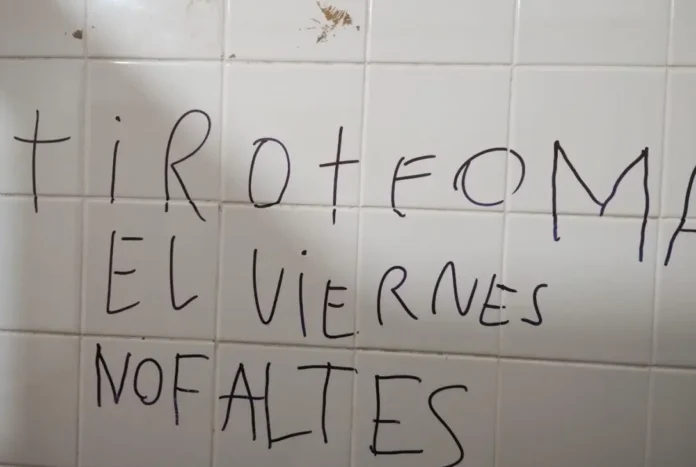 tiROtEOMA
EL ViERNES
NOFALTES